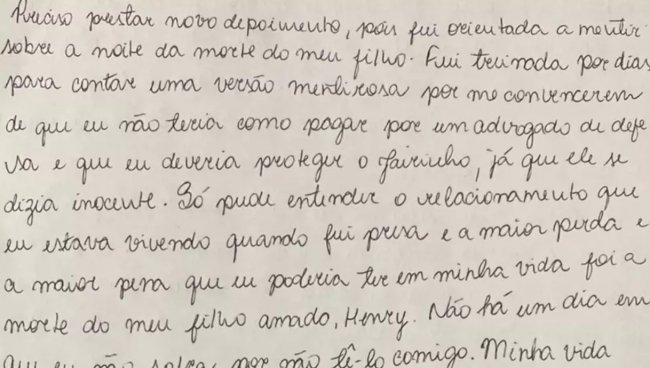 Preciso prestar novo depoimento, pois fui orientada a mentir
sobre a noite da morte do meu filho. Fui treinada por dias
para contar uma versão mentirosa por me convencerem
de que eu não teria como pagar por um advogado de defe
sa e que eu deveria proteger o Jairinho, já que ele se
dizia inocente. Só pude entender o relacionamento que
eu estava vivendo quando fui presa e a maior perda e
a maior pena que eu poderia ter em minha vida foi a
morte do meu filho amado, Henry. Não há um dia em
que eu não sofra por não tê-lo comigo. Minha vida